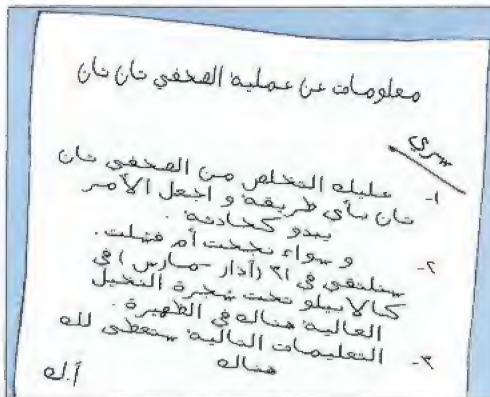 معلومات عن عملية الصحفي تان تان
سري
١- عليك التخلص من الصحفي تان
تان بأي طريقة و اجعل الأمر
يبدو كحادثة.
٢- و سواء نجحت أم فشلت.
سنلتقي في ٢١ (آذار - مارس) في
كالابيلو تحت شجرة النخيل
العالية هناك في الظهيرة.
٣- التعليمات التالية ستعطى لك
هناك
أ.ك